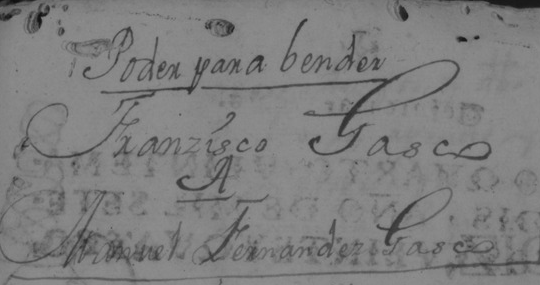 Poder para bender
Franzisco Gasco
A
Manuel Fernandez Gasco